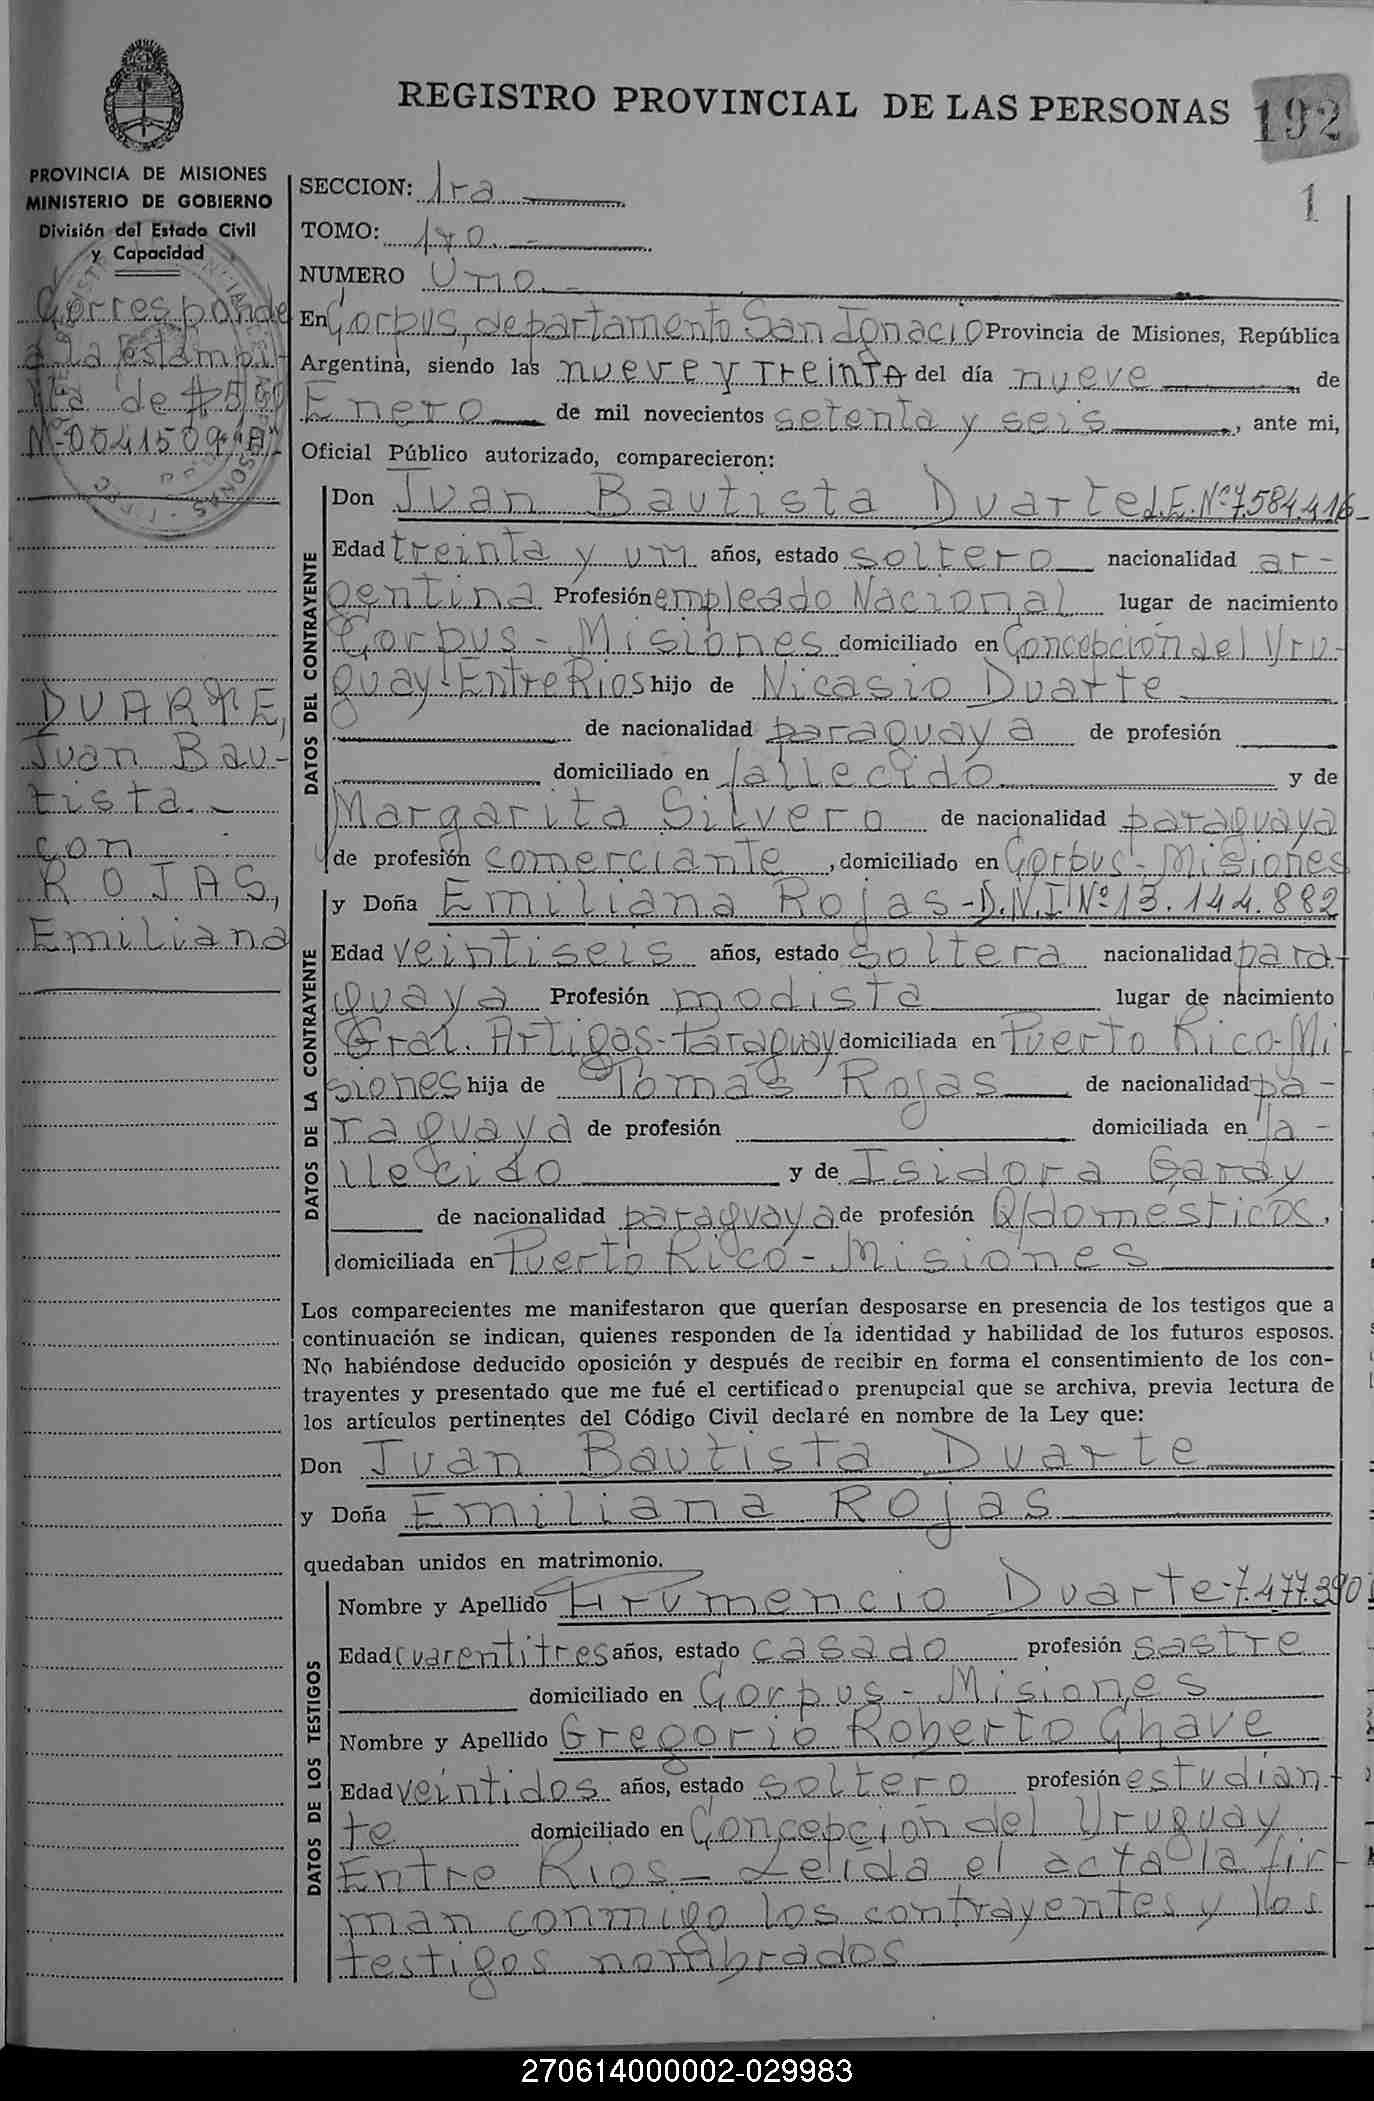 REGISTRO PROVINCIAL DE LAS PERSONAS
192
1
PROVINCIA DE MISIONES
MINISTERIO DE GOBIERNO
División del Estado Civil
y Capacidad
Corresponde
a la estampi-
lla de
Nº 0541509 "A"
DUARTE,
Juan Bau-
tista.-
con
ROJAS,
Emiliana
SECCION: 1ra
TOMO: 1ro.-
NUMERO Uno.-
En Corpus, departamento San Ignacio Provincia de Misiones, República
Argentina, siendo las nueve y treinta del día nueve de
Enero de mil novecientos setenta y seis, ante mi,
Oficial Público autorizado, comparecieron:
DATOS DEL CONTRAYENTE
Don Juan Bautista Duarte L.E. Nº 7.584.416-
Edad treinta y un años, estado soltero nacionalidad ar-
gentina Profesión empleado Nacional lugar de nacimiento
Corpus - Misiones domiciliado en Concepción del Uru-
guay-Entre Rios hijo de Nicasio Duarte
de nacionalidad paraguaya de profesión
domiciliado en fallecido y de
Margarita Silvero de nacionalidad paraguaya
de profesión comerciante, domiciliado en Corpus - Misiones
DATOS DE LA CONTRAYENTE
y Doña Emiliana Rojas - D.N.I. Nº 13.144.882
Edad veintiseis años, estado soltera nacionalidad para-
guaya Profesión modista lugar de nacimiento
Gral. Artigas-Paraguay domiciliada en Puerto Rico-Mi
siones hija de Tomás Rojas de nacionalidad pa-
raguaya de profesión domiciliada en fa-
llecido y de Isidora Garay
de nacionalidad paraguaya de profesión Q/domésticos,
domiciliada en Puerto Rico - Misiones
Los comparecientes me manifestaron que querían desposarse en presencia de los testigos que a
continuación se indican, quienes responden de la identidad y habilidad de los futuros esposos.
No habiéndose deducido oposición y después de recibir en forma el consentimiento de los con-
trayentes y presentado que me fué el certificado prenupcial que se archiva, previa lectura de
los artículos pertinentes del Código Civil declaré en nombre de la Ley que:
Don Juan Bautista Duarte
y Doña Emiliana Rojas
quedaban unidos en matrimonio.
DATOS DE LOS TESTIGOS
Nombre y Apellido Frumencio Duarte-7.477.390
Edad cuarentitres años, estado casado profesión sastre
domiciliado en Corpus - Misiones
Nombre y Apellido Gregorio Roberto Chave
Edad veintidos años, estado soltero profesión estudian-
te domiciliado en Concepción del Uruguay
Entre Rios - Leida el acta la fir-
man conmigo los contrayentes y los
testigos nombrados
270614000002-029983